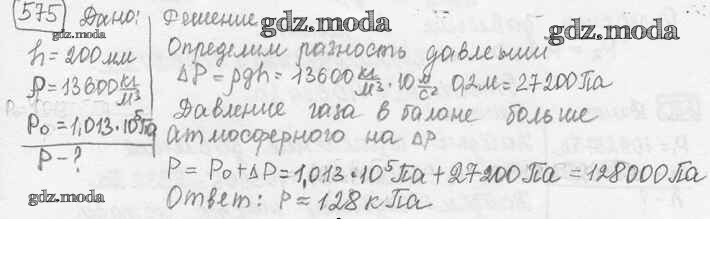 575 Дано:
h = 200 мм
ρ = 13600 кг/м³
P₀ = 1,013·10⁵ Па
P - ?
gdz.moda
Решение
gdz.moda
gdz.moda
Определим разность давлений
ΔP = ρgh = 13600 кг/м³ · 10 м/с² 0,2м = 27200 Па
Давление газа в балоне больше
атмосферного на ΔP
P = P₀ + ΔP = 1,013·10⁵ Па + 27200 Па = 128000 Па
Ответ: P ≈ 128 кПа